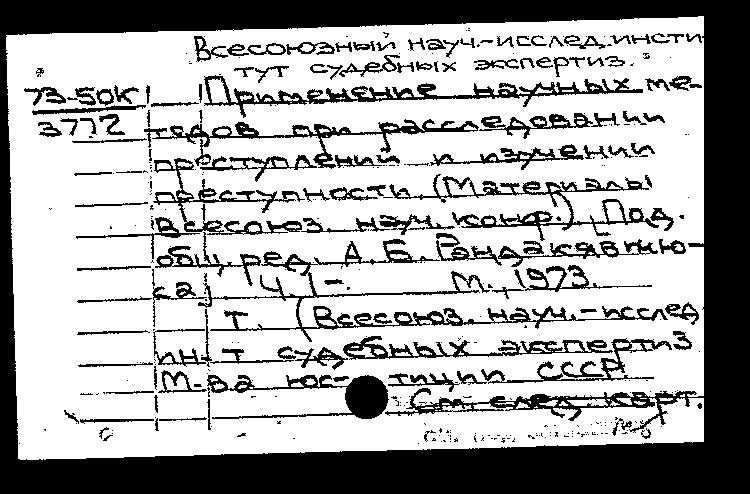 Всесоюзный науч.-исслед.инсти-
тут судебных экспертиз.
73-50К Применение научных ме-
3772 тодов при расследовании
преступлений и изучении
преступности. (Материалы
Всесоюз. науч. конф.). Под.
общ. ред. А. Б.
са. Ч. 1-. М., 1973.
т. (Всесоюз. науч.-исслед
ин-т судебных экспертиз
М-ва юс- тиции СССР
См. след. карт.